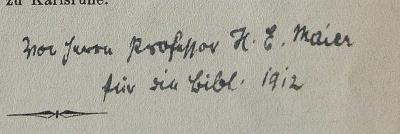 zu Karlsruhe.
Von Herrn Professor H. E. Maier
für die Bibl. 1912